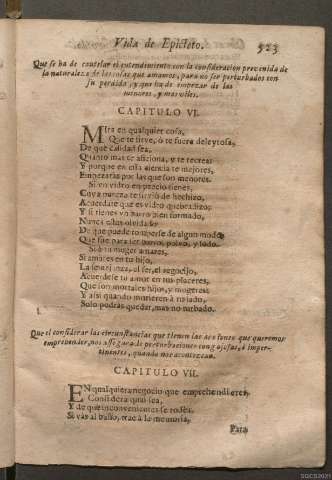 Vida de Epicteto. 523
Que se ha de cautelar el entendimiento con la consideracion prevenida de
la naturaleza de las cosas que amamos, para no ser perturbados con
su perdida, y que ha de empezar de las
menores, y mas viles.
CAPITULO VI.
MIra en qualquier cosa,
Que te sirve, ò te fuera deleytosa,
De què calidad sea,
Quanto mas te aficiona, y te recrea:
Y porque en esta ciencia te mejores,
Empezaràs por las que son menores.
Si en vidro en precio tienes,
Cuya pureza te sirviò de hechizo,
Acuerdate que es vidro quebradizo;
Y si tienes un barro bien formado,
Nunca estès olvidado
De que puede romperse de algun modo,
Que fue para ser barro, polvo, y lodo.
Si à tu muger amares,
Si amares en tu hijo,
La semejança, el ser, el regozijo,
Acuerdese tu amor en tus placeres,
Que son mortales hijos, y mugeres:
Y assi quando murieren à tu lado,
Solo podràs quedar, mas no turbado.
Que el considerar las circunstancias que tienen las acciones que queremos
emprender, nos assegura de perturbaciones congojosas, è imper-
tinentes, quando nos acontezcan.
CAPITULO VII.
EN qualquiera negocio que emprehendieres,
Considera quò sea,
Y de què inconvenientes se rodèa.
Si vàs al baño, trae à la memoria,
Para
SGCB2021